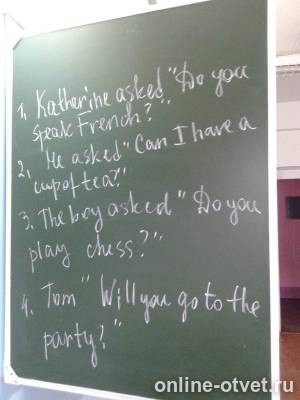 1. Katherine asked "Do you
speak French?"
2. He asked "Can I have a
cup of tea?"
3. The boy asked "Do you
play chess?"
4. Tom "Will you go to the
party?"
online-otvet.ru